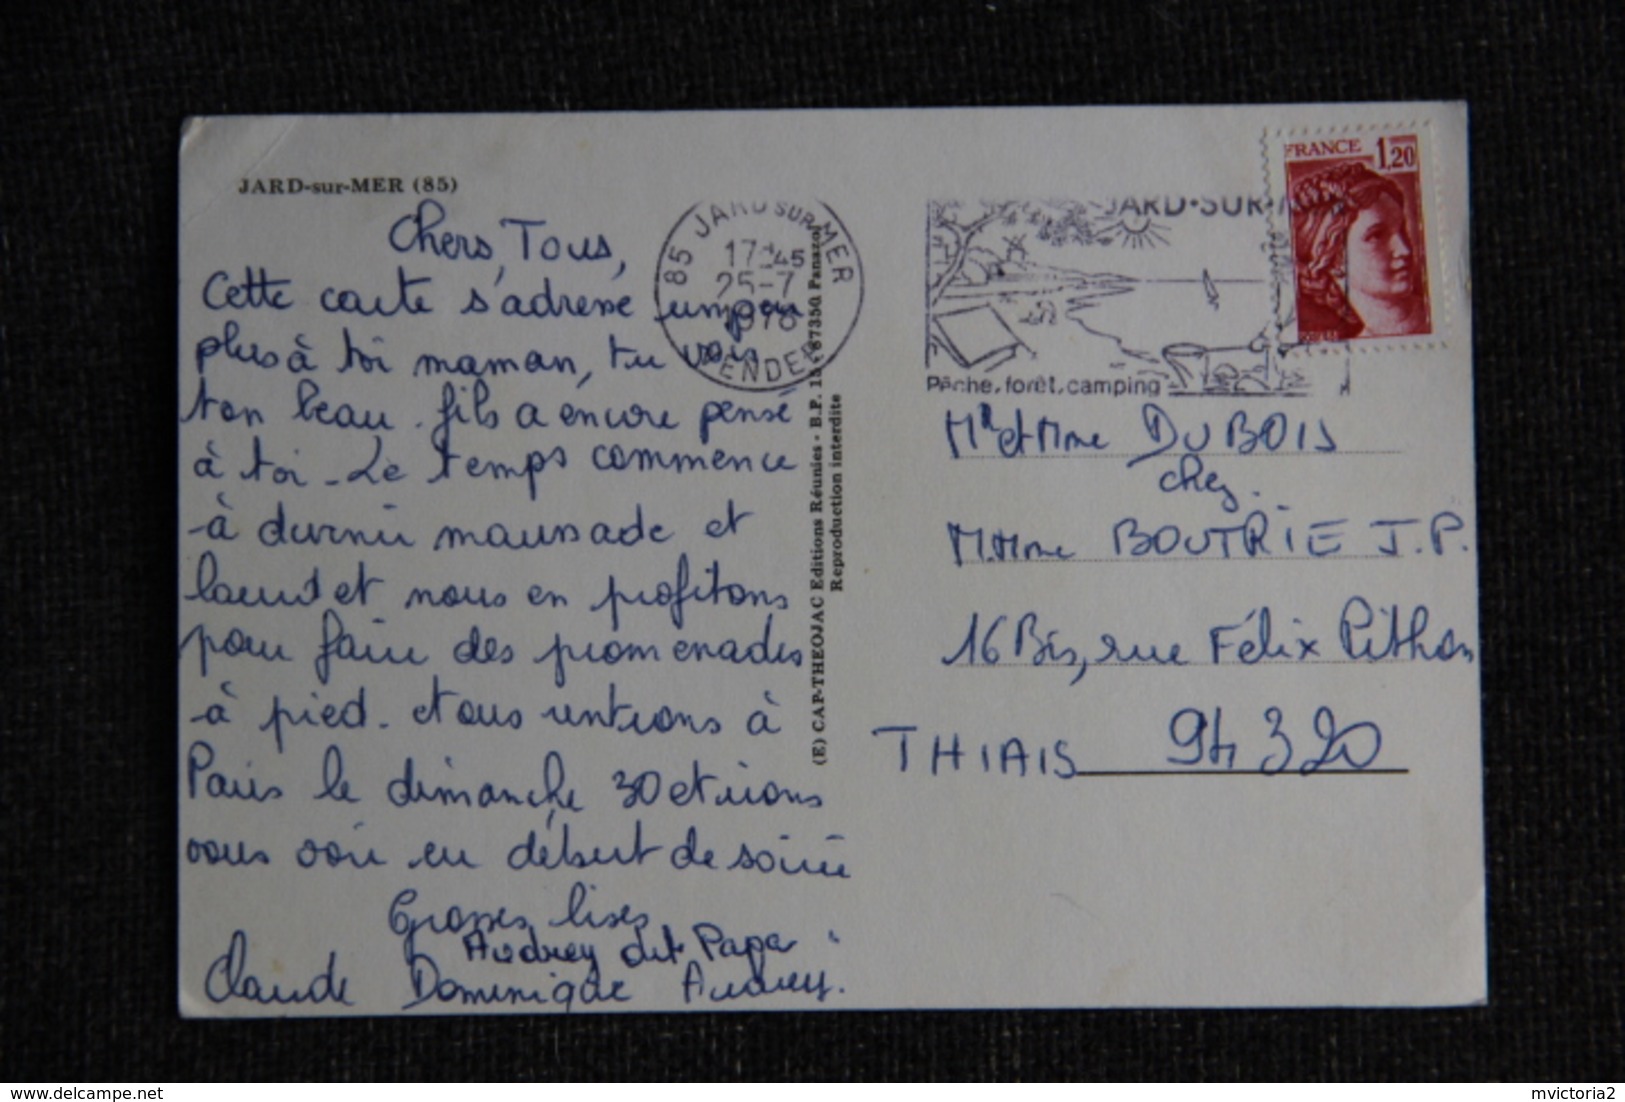 JARD-sur-MER (85)
Chers Tous,
Cette carte s'adresse un peu
plus à toi maman, tu vois
ton beau-fils a encore pensé
à toi - Le temps commence
à devenir maussade et
lourd et nous en profitons
pour faire des promenades
à pied. Nous rentrons à
Paris le dimanche 30 et irons
vous voir en début de soirée
Grosses bises
Audrey dit Papa
Claude Dominique Audrey.
85 JARD SUR MER
17H45
25-7
1978
VENDEE
(E) CAP-THEOJAC Editions Réunies - B.P. 15 - 87350 Panazol
Reproduction interdite
JARD-SUR-
Pêche, forêt, camping
FRANCE 1,20
Mr et Mme DUBOIS
chez
M. Mme BOUTRIE J.P.
16 Bis, rue Félix Pithon
THIAIS 94320
delcampe.net
mvictoria2